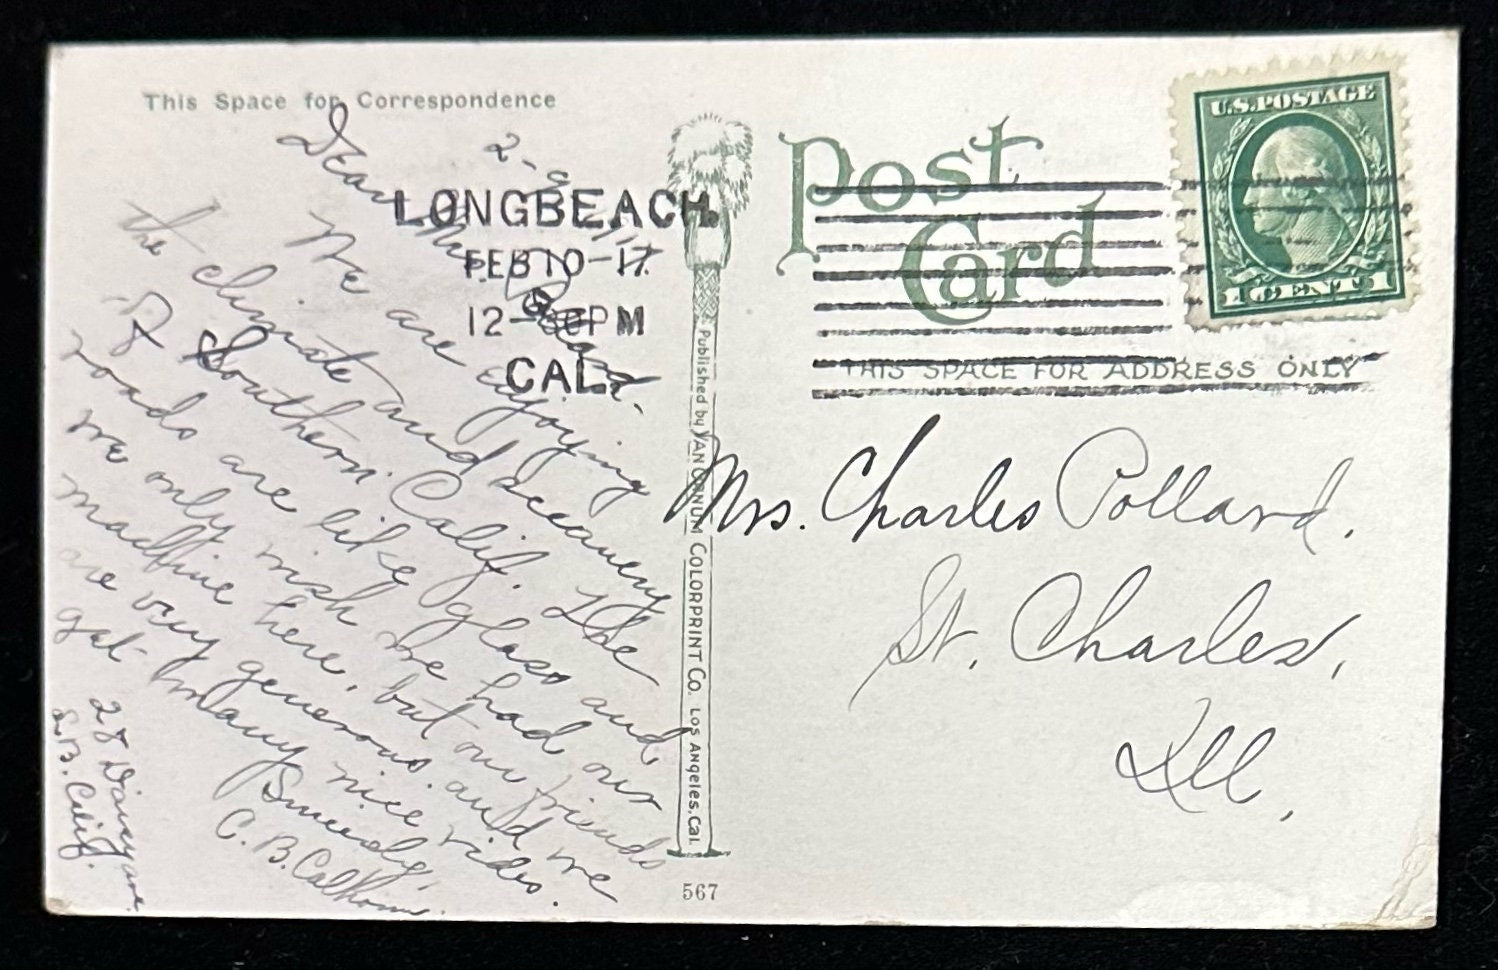 This Space for Correspondence
2-9-17
Dear Mrs. Pollard.
We are enjoying
the climate and scenery
of Southern Calif. The
roads are like glass and
we only wish we had our
machine here, but our friends
are very generous and we
get many nice rides.
Sincerely,
C. B. Calhoun.
L.B. Calif.
LONGBEACH.
FEB 10-17
12- PM
CAL.
Published by VAN ORNUM COLORPRINT CO. LOS ANGELES, CAL.
567
Post
Card
U.S. POSTAGE
1 CENT 1
THIS SPACE FOR ADDRESS ONLY
Mrs. Charles Pollard.
St. Charles,
Ill,